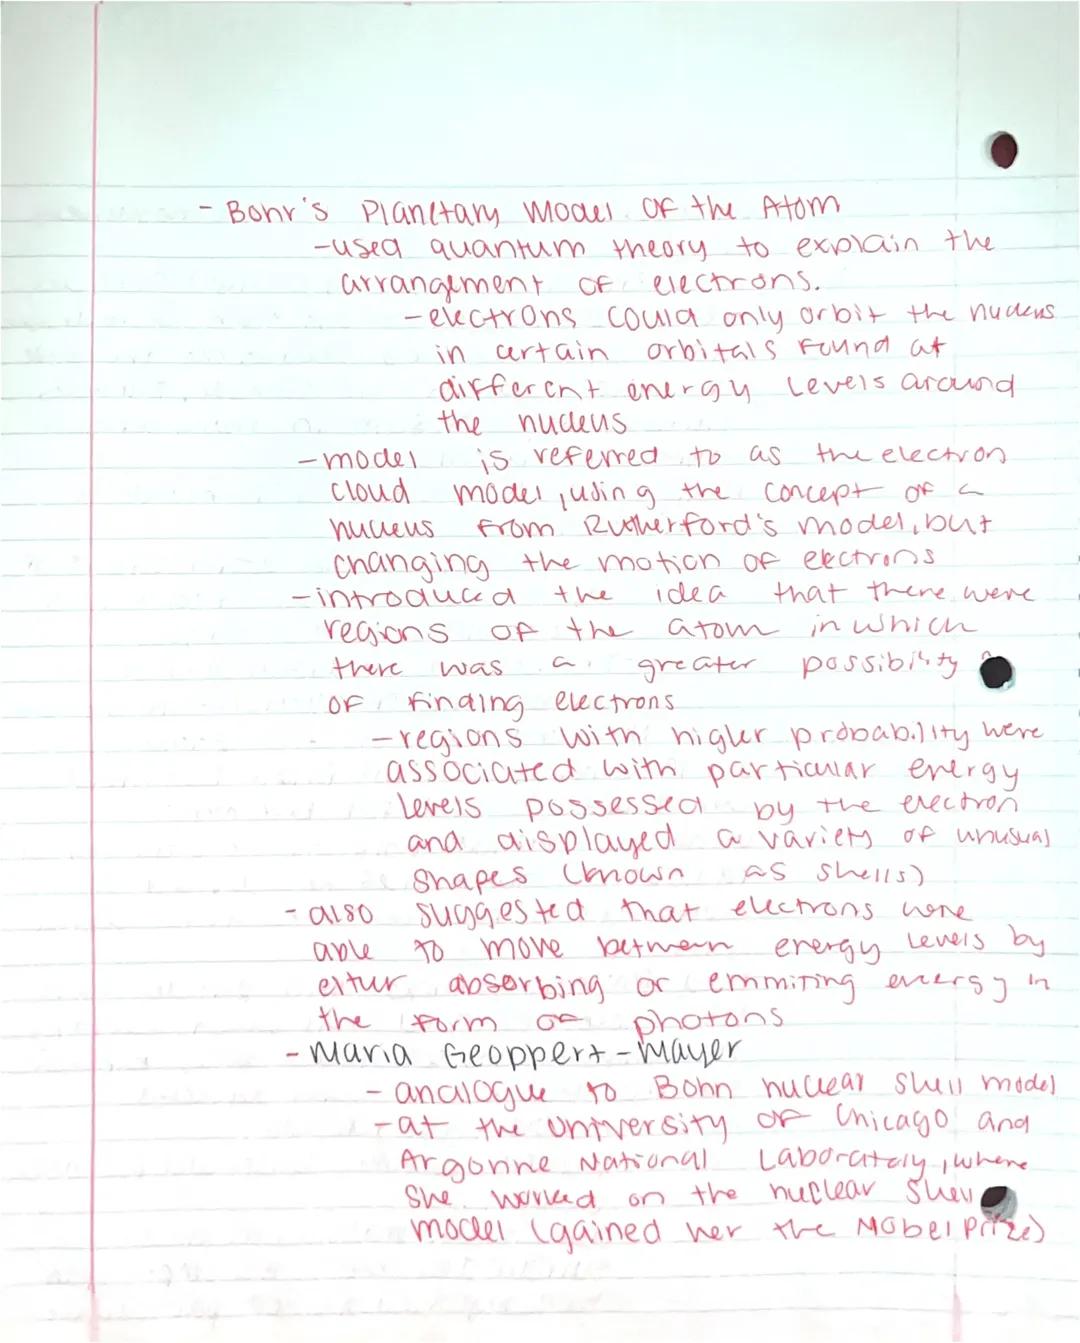 - Bohr's Planetary Model of the Atom
- used quantum theory to explain the
arrangement of electrons.
- electrons could only orbit the nucleus
in certain orbitals found at
different energy levels around
the nucleus
- model is referred to as the electron
cloud model, using the concept of a
nucleus from Rutherford's model, but
changing the motion of electrons
- introduced the idea that there were
regions of the atom in which
there was a greater possibility
of finding electrons
- regions with higher probability were
associated with particular energy
levels possessed by the electron
and displayed a variety of unusual
shapes (known as shells)
- also suggested that electrons were
able to move between energy levels by
either absorbing or emmiting energy in
the form of photons
- Maria Geoppert-Mayer
- analogue to Bohn nuclear shell model
- at the University of Chicago and
Argonne National Laborataly, where
she worked on the nuclear shell
model (gained her the Nobel Prize)